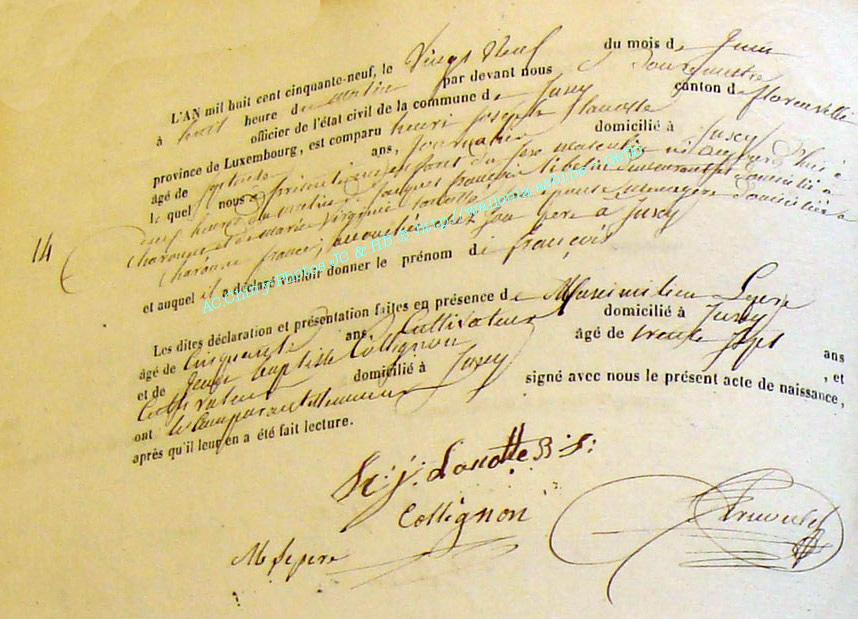 L'AN mil huit cent cinquante-neuf, le Vingt Neuf du mois de Juin
à huit heure du matin par devant nous Bourgmestre
officier de l'état civil de la commune de Jusey canton de florenville
province de Luxembourg, est comparu henri Joseph Lanotte
âgé de ans, Journalier domicilié à Jusey
lequel nous a présenté un enfant du sexe masculin né aujourd'hui à
neuf heures du matin de Jacques françois domicilié à
Charonne et de marie Virginie Lanotte épouse ménagère domiciliée à
Charonne france, accouchée chez son père à Jusey
14
et auquel il a déclaré vouloir donner le prénom de françois
Les dites déclaration et présentation faites en présence de Maximilien
âgé de Cinquante ans Cultivateur domicilié à Jusey
et de Jean baptiste Collignon âgé de trente sept ans
Cultivateur domicilié à Jusey , et
ont le Comparant et témoins signé avec nous le présent acte de naissance,
après qu'il leur en a été fait lecture.
AC Chiny Photos JC & HB @ http://wallonia.asbl.be
h: j: Lanotte
Collignon